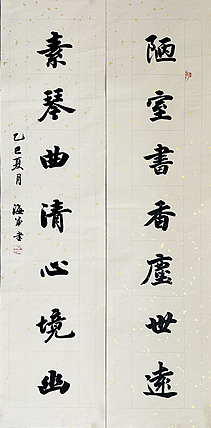 陋室書香塵世遠
素琴曲清心境幽
乙巳夏月
海弟書